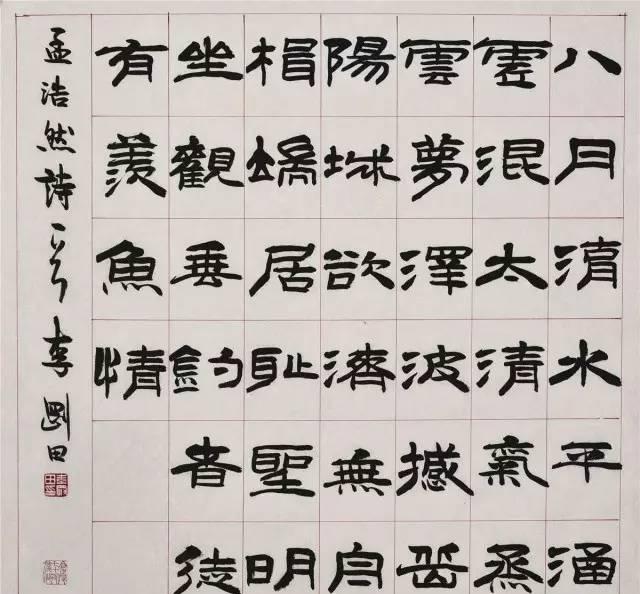 八月湖水平涵
虛混太清氣蒸
雲夢澤波撼岳
陽城欲濟無舟
楫端居耻聖明
坐觀垂釣者徒
有羨魚情
孟浩然詩一首 李剛田